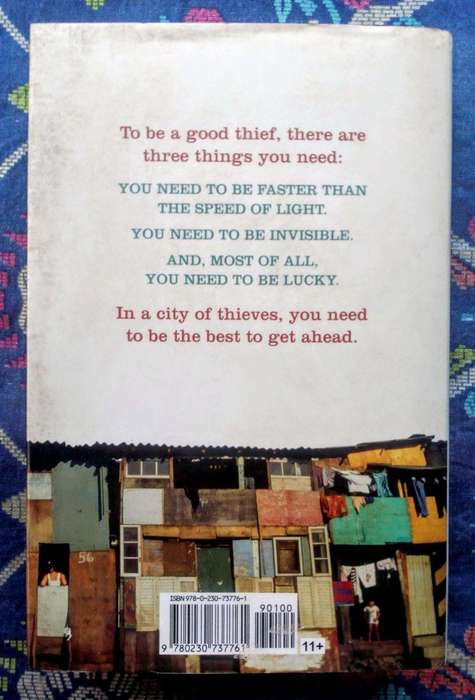 To be a good thief, there are
three things you need:
YOU NEED TO BE FASTER THAN
THE SPEED OF LIGHT.
YOU NEED TO BE INVISIBLE.
AND, MOST OF ALL,
YOU NEED TO BE LUCKY.
In a city of thieves, you need
to be the best to get ahead.
56
ISBN 978-0-230-73776-1
90100
9 780230 737761
11+